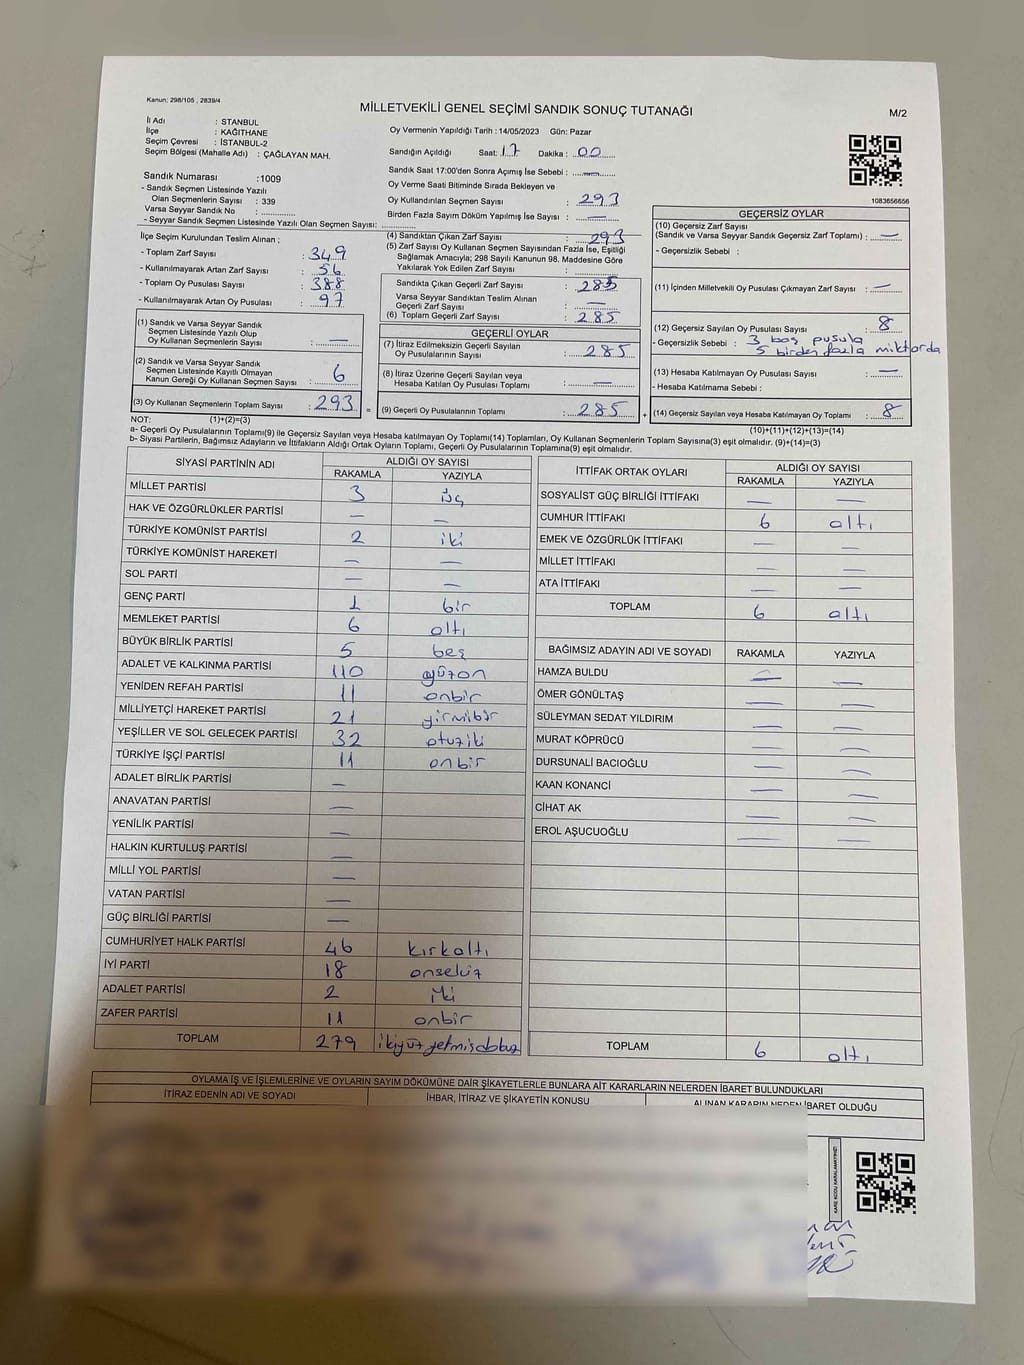 Kanun: 298/105 ; 2839/4
MİLLETVEKİLİ GENEL SEÇİMİ SANDIK SONUÇ TUTANAĞI
M/2
İl Adı : STANBUL
İlçe : KAĞITHANE
Seçim Çevresi : İSTANBUL-2
Seçim Bölgesi (Mahalle Adı) : ÇAĞLAYAN MAH.
Oy Vermenin Yapıldığı Tarih : 14/05/2023 Gün: Pazar
Sandığın Açıldığı Saat: 17 Dakika : 00
Sandık Saat 17:00'den Sonra Açımış İse Sebebi : —
Oy Verme Saati Bitiminde Sırada Bekleyen ve
Oy Kullandırılan Seçmen Sayısı : 293
Birden Fazla Sayım Döküm Yapılmış İse Sayısı : —
1083656656
Sandık Numarası :1009
- Sandık Seçmen Listesinde Yazılı
Olan Seçmenlerin Sayısı : 339
Varsa Seyyar Sandık No :
- Seyyar Sandık Seçmen Listesinde Yazılı Olan Seçmen Sayısı:
İlçe Seçim Kurulundan Teslim Alınan ;
- Toplam Zarf Sayısı : 349
- Kullanılmayarak Artan Zarf Sayısı : 56
- Toplam Oy Pusulası Sayısı : 388
- Kullanılmayarak Artan Oy Pusulası : 97
(1) Sandık ve Varsa Seyyar Sandık
Seçmen Listesinde Yazılı Olup
Oy Kullanan Seçmenlerin Sayısı : —
(2) Sandık ve Varsa Seyyar Sandık
Seçmen Listesinde Kayıtlı Olmayan
Kanun Gereği Oy Kullanan Seçmen Sayısı : 6
(3) Oy Kullanan Seçmenlerin Toplam Sayısı : 293 =
(4) Sandıktan Çıkan Zarf Sayısı : 293
(5) Zarf Sayısı Oy Kullanan Seçmen Sayısından Fazla İse, Eşitliği
Sağlamak Amacıyla; 298 Sayılı Kanunun 98. Maddesine Göre
Yakılarak Yok Edilen Zarf Sayısı :
Sandıkta Çıkan Geçerli Zarf Sayısı : 285
Varsa Seyyar Sandıktan Teslim Alınan
Geçerli Zarf Sayısı : —
(6) Toplam Geçerli Zarf Sayısı : 285
GEÇERLİ OYLAR
(7) İtiraz Edilmeksizin Geçerli Sayılan
Oy Pusulalarının Sayısı : 285
(8) İtiraz Üzerine Geçerli Sayılan veya
Hesaba Katılan Oy Pusulası Toplamı : —
(9) Geçerli Oy Pusulalarının Toplamı : 285 +
GEÇERSİZ OYLAR
(10) Geçersiz Zarf Sayısı
(Sandık ve Varsa Seyyar Sandık Geçersiz Zarf Toplamı) : —
- Geçersizlik Sebebi :
(11) İçinden Milletvekili Oy Pusulası Çıkmayan Zarf Sayısı : —
(12) Geçersiz Sayılan Oy Pusulası Sayısı : 8
- Geçersizlik Sebebi : 3 boş pusula
5 birden fazla miktarda
(13) Hesaba Katılmayan Oy Pusulası Sayısı : —
- Hesaba Katılmama Sebebi :
(14) Geçersiz Sayılan veya Hesaba Katılmayan Oy Toplamı : 8
NOT: (1)+(2)=(3)
(10)+(11)+(12)+(13)=(14)
a- Geçerli Oy Pusulalarının Toplamı(9) ile Geçersiz Sayılan veya Hesaba katılmayan Oy Toplamı(14) Toplamları, Oy Kullanan Seçmenlerin Toplam Sayısına(3) eşit olmalıdır. (9)+(14)=(3)
b- Siyasi Partilerin, Bağımsız Adayların ve İttifakların Aldığı Ortak Oyların Toplamı, Geçerli Oy Pusulalarının Toplamına(9) eşit olmalıdır.
SİYASİ PARTİNİN ADI ALDIĞI OY SAYISI
RAKAMLA YAZIYLA
MİLLET PARTİSİ 3 üç
HAK VE ÖZGÜRLÜKLER PARTİSİ — —
TÜRKİYE KOMÜNİST PARTİSİ 2 iki
TÜRKİYE KOMÜNİST HAREKETİ — —
SOL PARTİ — —
GENÇ PARTİ 1 bir
MEMLEKET PARTİSİ 6 altı
BÜYÜK BİRLİK PARTİSİ 5 beş
ADALET VE KALKINMA PARTİSİ 110 yüzon
YENİDEN REFAH PARTİSİ 11 onbir
MİLLİYETÇİ HAREKET PARTİSİ 21 yirmibir
YEŞİLLER VE SOL GELECEK PARTİSİ 32 otuziki
TÜRKİYE İŞÇİ PARTİSİ 11 onbir
ADALET BİRLİK PARTİSİ —
ANAVATAN PARTİSİ —
YENİLİK PARTİSİ —
HALKIN KURTULUŞ PARTİSİ —
MİLLİ YOL PARTİSİ —
VATAN PARTİSİ —
GÜÇ BİRLİĞİ PARTİSİ —
CUMHURİYET HALK PARTİSİ 46 kırkaltı
İYİ PARTİ 18 onsekiz
ADALET PARTİSİ 2 iki
ZAFER PARTİSİ 11 onbir
TOPLAM 279 ikiyüzyetmişdokuz
İTTİFAK ORTAK OYLARI ALDIĞI OY SAYISI
RAKAMLA YAZIYLA
SOSYALİST GÜÇ BİRLİĞİ İTTİFAKI — —
CUMHUR İTTİFAKI 6 altı
EMEK VE ÖZGÜRLÜK İTTİFAKI — —
MİLLET İTTİFAKI — —
ATA İTTİFAKI — —
TOPLAM 6 altı
BAĞIMSIZ ADAYIN ADI VE SOYADI RAKAMLA YAZIYLA
HAMZA BULDU — —
ÖMER GÖNÜLTAŞ — —
SÜLEYMAN SEDAT YILDIRIM — —
MURAT KÖPRÜCÜ — —
DURSUNALİ BACIOĞLU — —
KAAN KONANCİ — —
CİHAT AK — —
EROL AŞUCUOĞLU — —
TOPLAM 6 altı
OYLAMA İŞ VE İŞLEMLERİNE VE OYLARIN SAYIM DÖKÜMÜNE DAİR ŞİKAYETLERLE BUNLARA AİT KARARLARIN NELERDEN İBARET BULUNDUKLARI
İTİRAZ EDENİN ADI VE SOYADI İHBAR, İTİRAZ VE ŞİKAYETİN KONUSU ALINAN KARARIN NEDEN İBARET OLDUĞU
KARE KODU KARALAMAYINIZ!